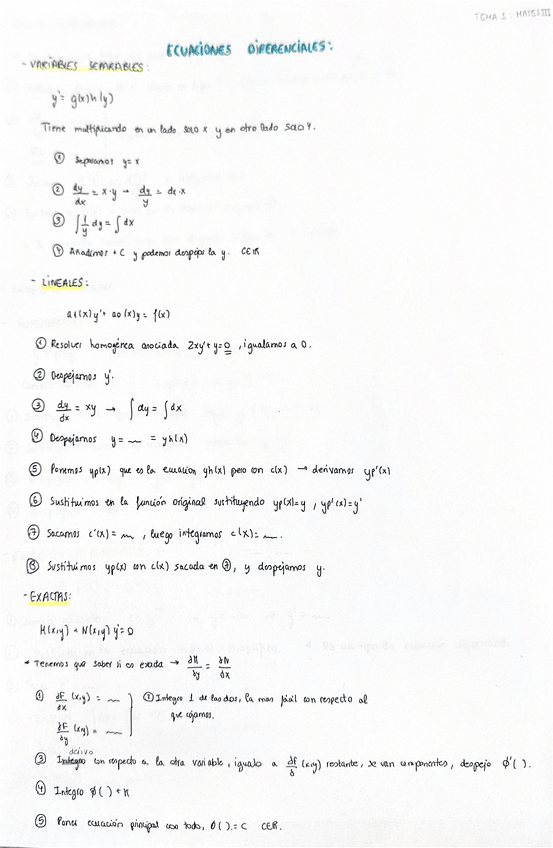 TEMA 1: MATES III
ECUACIONES DIFERENCIALES:
- VARIABLES SEPARABLES:
y' = g(x)h(y)
Tiene multiplicando en un lado solo x y en otro lado solo y.
① Separamos y = x
② dy/dx = x·y → dy/y = dx·x
③ ∫ 1/y dy = ∫ dx
④ Añadimos + C y podemos despejar la y. C∈ℝ
- LINEALES:
a1(x)y' + a0(x)y = f(x)
① Resolver homogénea asociada 2xy' + y = 0, igualamos a 0.
② Despejamos y'.
③ dy/dx = xy → ∫ dy = ∫ dx
④ Despejamos y = = yh(x)
⑤ Ponemos yp(x) que es la ecuación yh(x) pero con c(x) → derivamos yp'(x)
⑥ Sustituimos en la función original sustituyendo yp(x)=y, yp'(x)=y'
⑦ Sacamos c'(x) = , luego integramos c(x) = .
⑧ Sustituimos yp(x) con c(x) sacada en ⑦, y despejamos y.
- EXACTAS:
M(x,y) + N(x,y) y' = 0
* Tenemos que saber si es exacta → ∂M/∂y = ∂N/∂x
① ∂F/∂x (x,y) =
∂F/∂y (x,y) =
② Integro 1 de las dos, la mas fácil con respecto al
que cojamos.
derivo
③ Integro con respecto a la otra variable, igualo a ∂F/∂ (x,y) restante, se van componentes, despejo ϕ'( ).
④ Integro ϕ( ) + K
⑤ Poner ecuación principal con todo, ϕ( ) = C C∈ℝ.